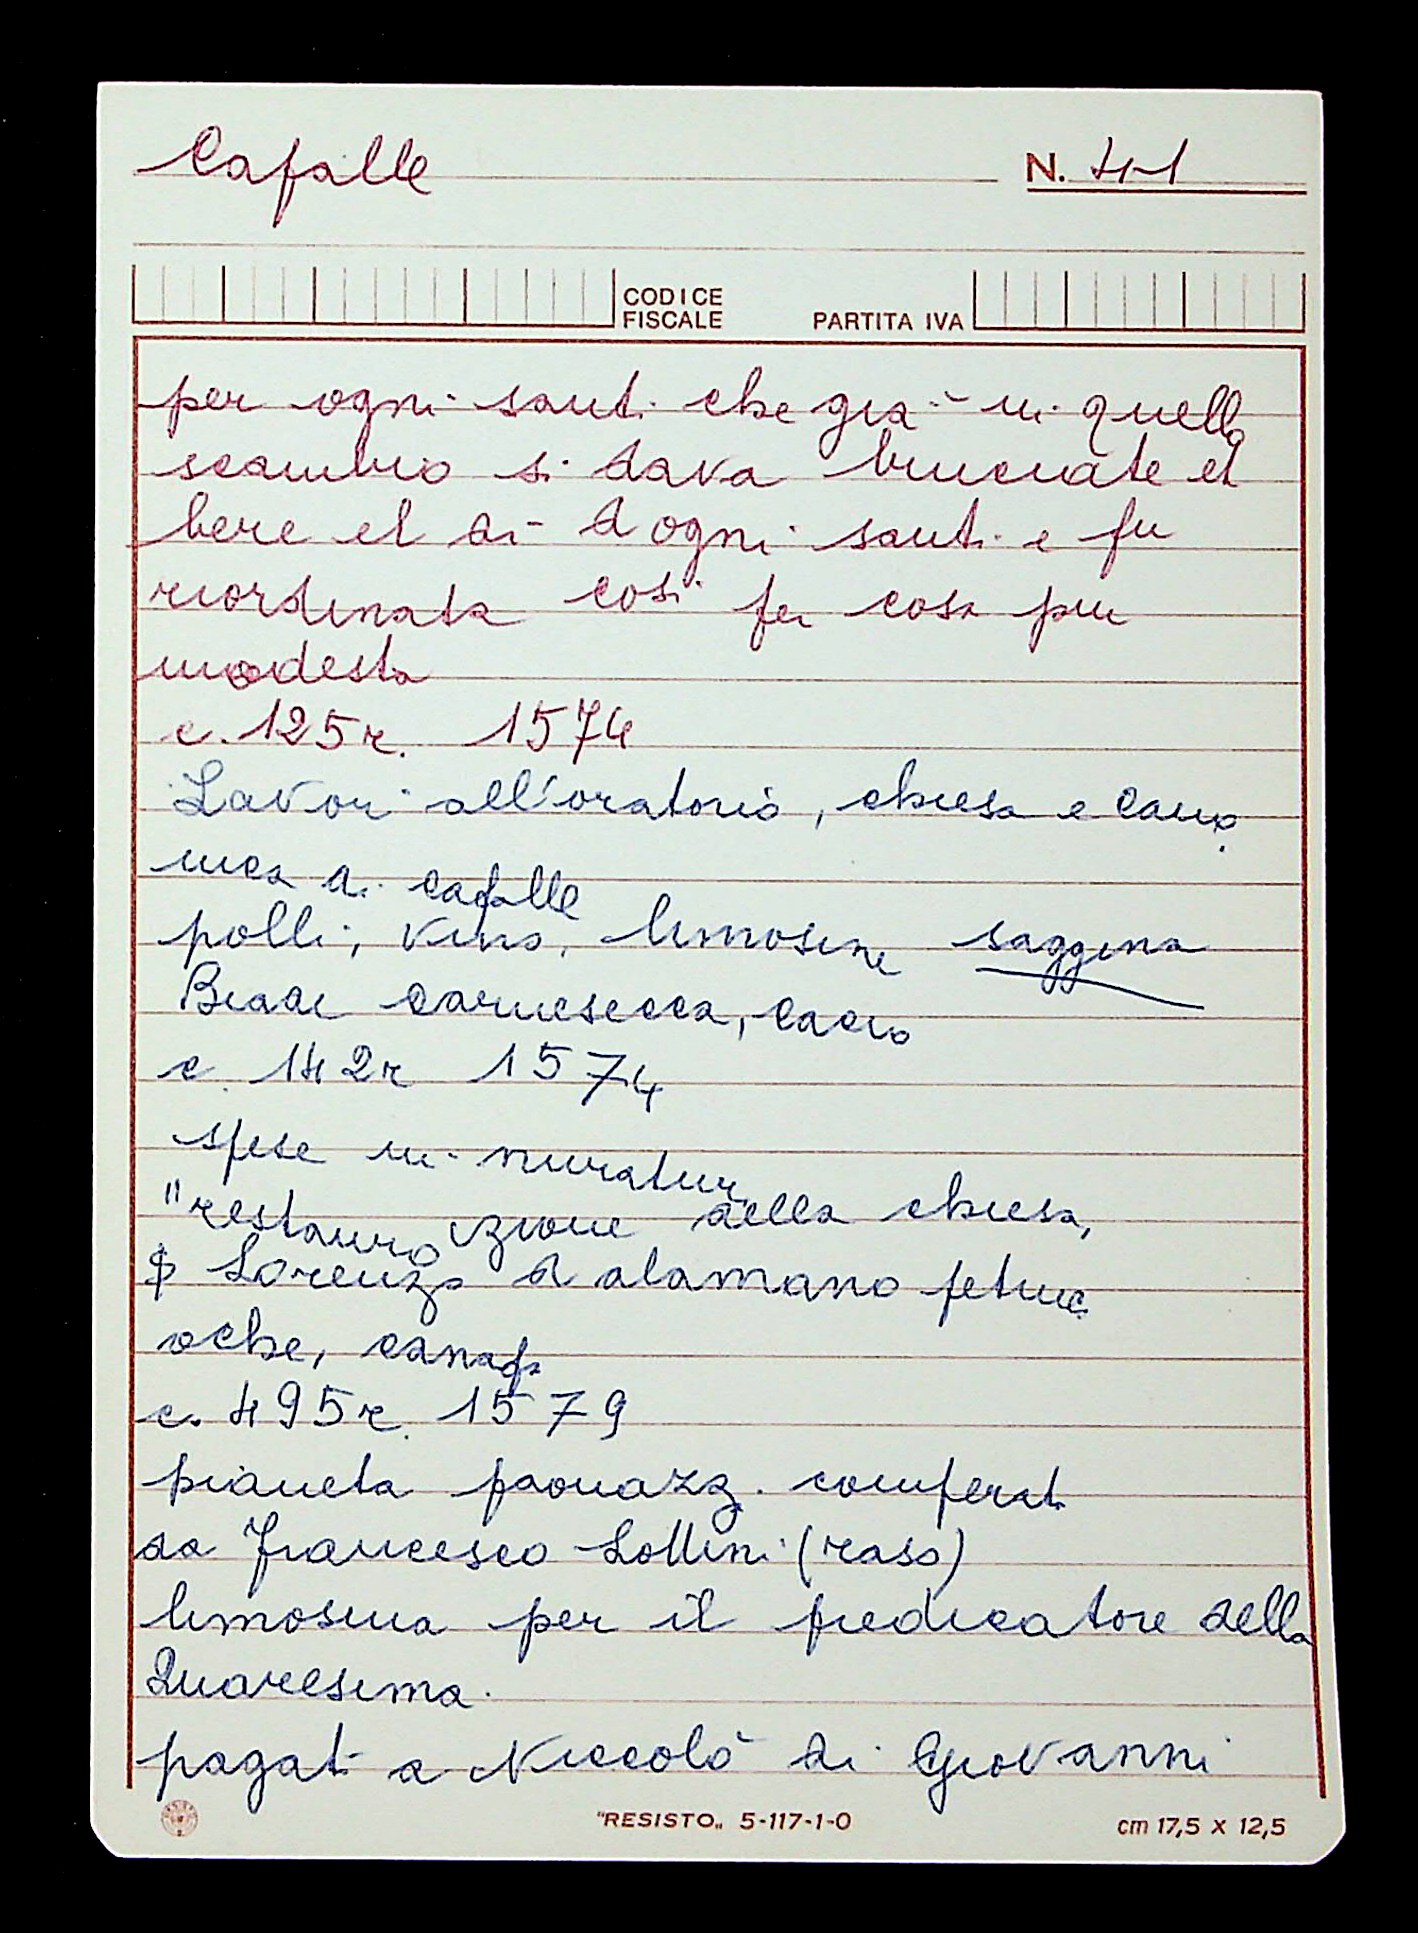 Cafalle N. 41
CODICE
FISCALE PARTITA IVA
per ogni santi che già in quello
scambio si dava bruciate et
bere el di d ogni santi e fu
riordinata così per cosa più
modesta
c. 125r. 1574
Lavori all'oratorio, chiesa e cano
nica di Cafalle
polli, vino, limosine saggina
carnesecca, cacio
c. 142r 1574
spese in muratur
"restaurozione della chiesa,
Lorenzo d alamano
oche, canapa
c. 495r. 1579
pianeta paonazz. comperata
da Francesco Lottini (raso)
limosina per il predicatore della
Quaresima.
pagati a Niccolò di Giovanni
"RESISTO„ 5-117-1-0 cm 17,5 x 12,5